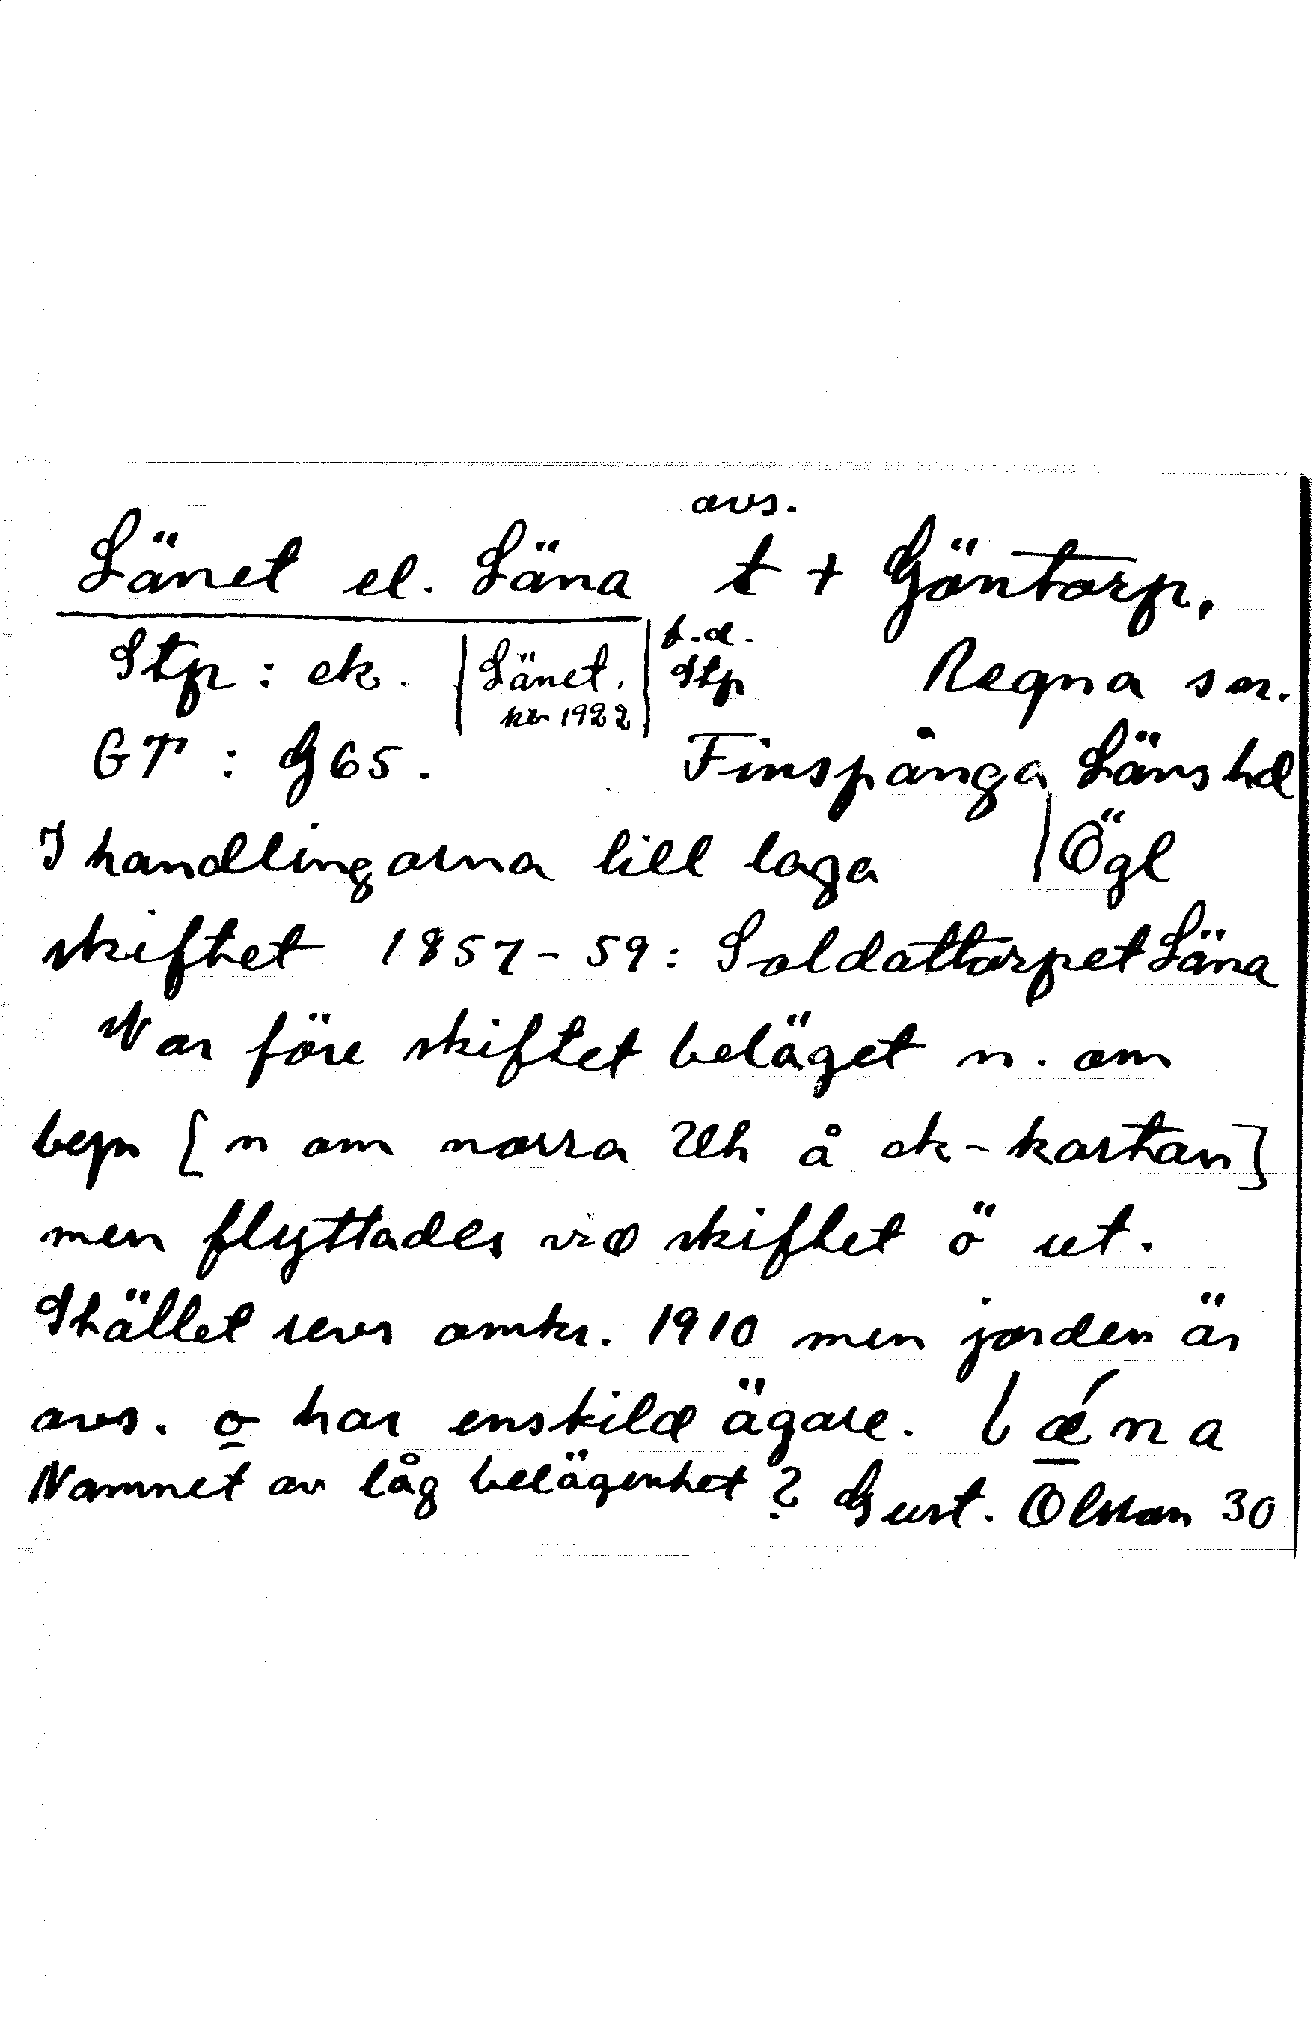 avs.
Länet el. Läna t + Göntorp,
Stp : ek. Länet. f.d.
kb 1922 Stp Regna sn.
GT : G65. Finspånga Länshd
I handlingarna till laga Ögl
skiftet 1857-59: Soldattorpet Läna
Var före skiftet beläget n. om
bepn [n om norra Uh å ek-kartan]
men flyttades vid skiftet ö ut.
Stället revs omkr. 1910 men jorden är
avs. o har enskild ägare. lǽna
Namnet av låg belägenhet? Gust. Olsson 30